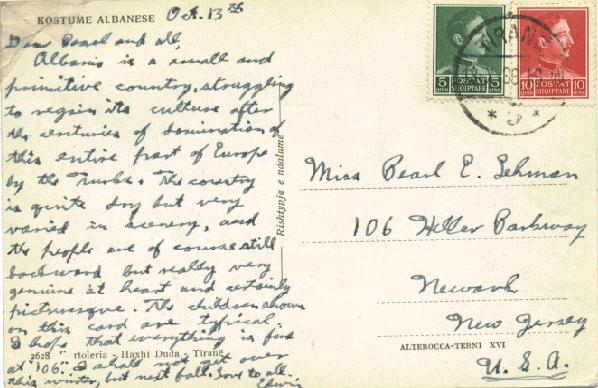 KOSTUME ALBANESE
Oct. 13th
Dear Pearl and all,
Albania is a small and
primitive country, struggling
to regain its culture after
the centuries of domination of
this entire part of Europe
by the Turks. The country
is quite dry but very
varied in scenery, and
the people are of course still
backward but really very
genuine at heart and certainly
picturesque. The children shown
on this card are typical.
I hope that everything is fine
at "106". I shall not get over
this winter, but next fall. Love to all.
Edwin
2628 rtoleria - Haxhi Duda - Tiranë
Rishtypja e ndalume
5 QIND POSTAT SHQIPTARE 5 QIND
10 QIND POSTAT SHQIPTARE 10 QIND
TIRAN
* 5 *
Miss Pearl E. Lehman
106 Heller Parkway
Newark
New Jersey
U. S. A.
ALTEROCCA-TERNI XVI